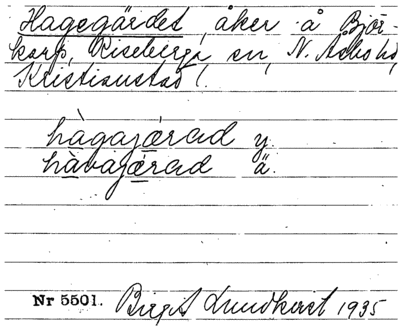 Hagegärdet, åker å Björ-
karp, Riseberga sn, N. Åsbo hd,
Kristianstad l.
hàgajǽrad y.
hàvajǽrad ä.
Nr 5501. Birgit Lundkvist 1935